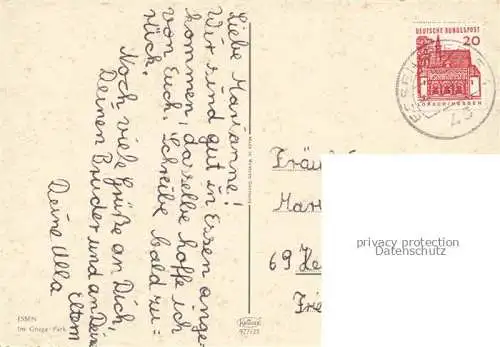 Liebe Marianne!
Wir sind gut in Essen ange-
kommen, dasselbe hoffe ich
von Euch. Schreibe bald zu=
rück.
Noch viele Grüße an Dich,
Deinen Bruder und an Deine
Eltern
Deine Ulla
ESSEN
Im Gruga-Park
Made in Western Germany
KRÜGER
977/25
DEUTSCHE BUNDESPOST
20
LORSCH/HESSEN
43
Fräu
Mar
69 He
Frie
privacy protection
Datenschutz